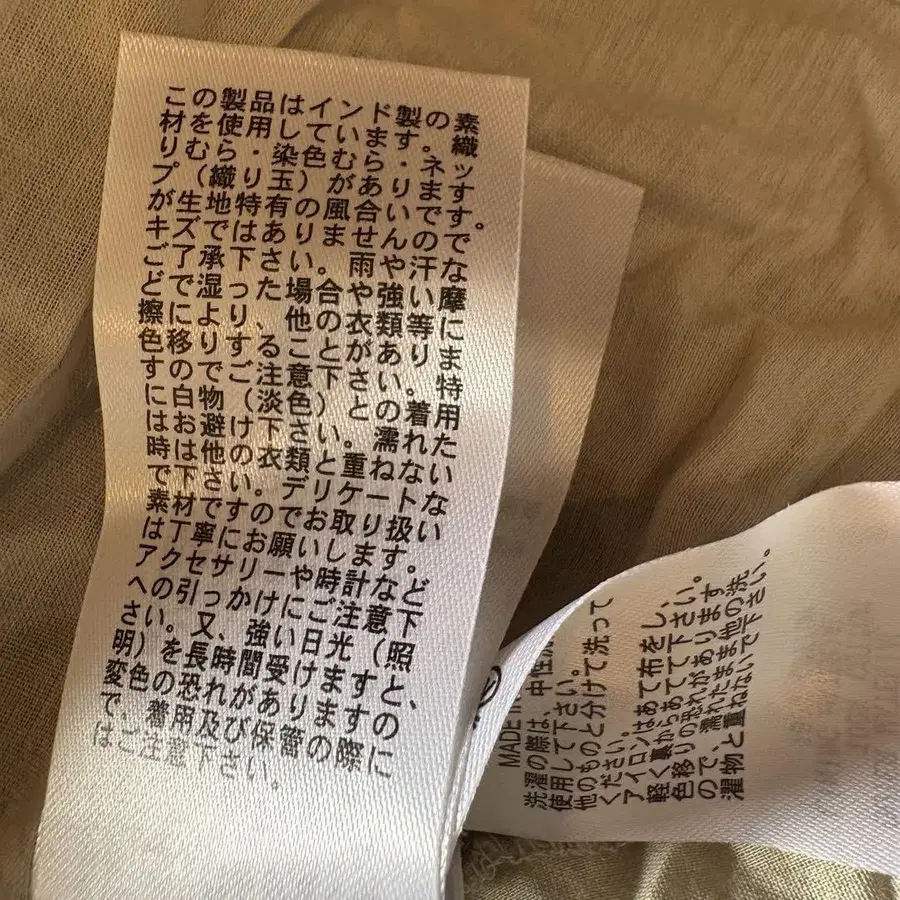 この製品はインド製の素
材を使用しています。織
りむら・染色むら・ネッ
プ（織り玉）がありますす
が生地特有の風合いです。
キズではありませんので
ご了承下さい。雨や汗な
どで湿った場合や強い摩
擦により、他の衣類等に
色移りすることがありま
すのでご注意下さい。特
に白物（淡色）との着用
はお避け下さい。濡れた
時は他の衣類と重ねない
で下さい。デリケートな
素材ですのでお取り扱い
は丁寧にお願いします。
アクセサリーや時計など
への引っかけにご注意下
さい。又、強い日光（照
明）を長時間受けますと、
変色の恐れがありますの
で、着用及び保管の際に
はご注意下さい。
MADE IN
洗濯の際は、中性
使用して下さい。
他のものと分けて洗って
ください。
アイロンはあて布をし、
軽く裏からあてて下さい。
色移りの恐れがあります
ので、濡れたまま他の洗
濯物と重ねないで下さい。